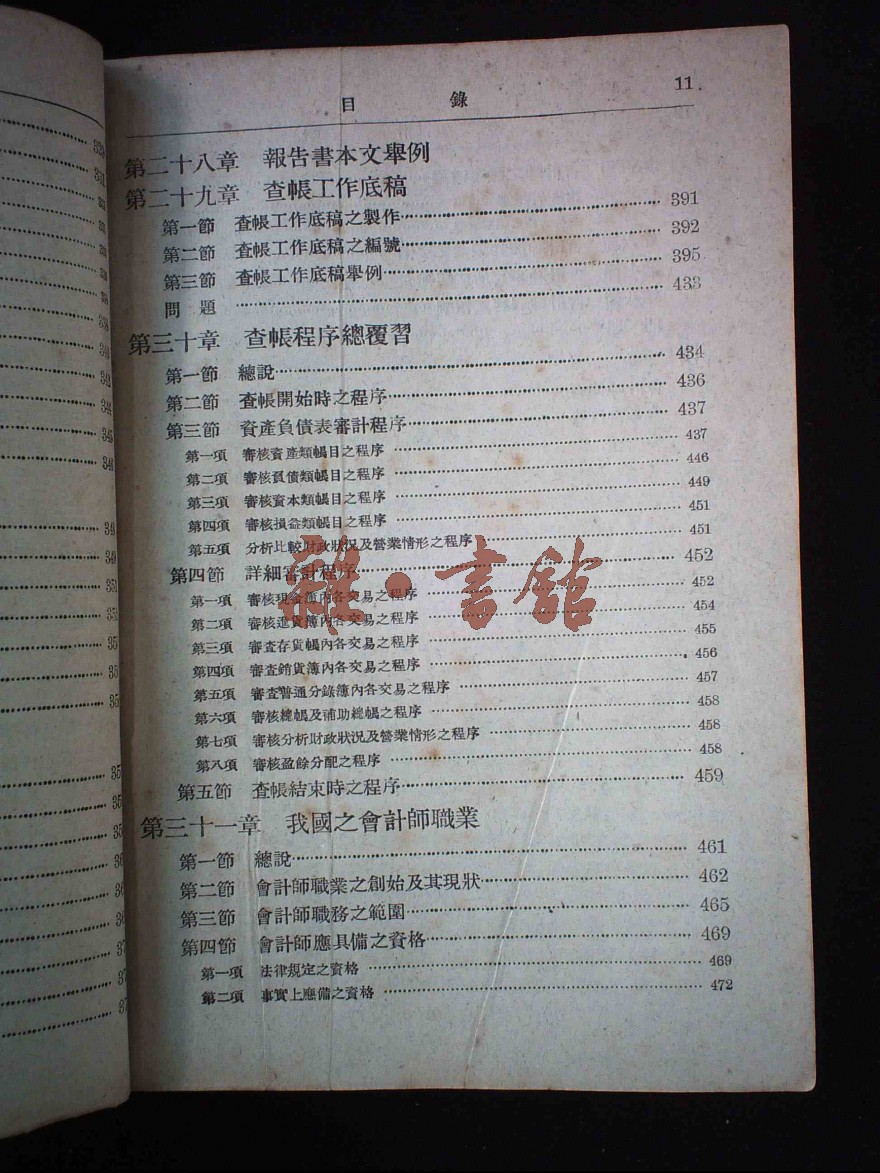 目錄 11
第二十八章 報告書本文舉例
第二十九章 查帳工作底稿
第一節 查帳工作底稿之製作 391
第二節 查帳工作底稿之編號 392
第三節 查帳工作底稿舉例 395
問題 433
第三十章 查帳程序總覆習
第一節 總說 434
第二節 查帳開始時之程序 436
第三節 資產負債表審計程序 437
第一項 審核資產類帳目之程序 437
第二項 審核負債類帳目之程序 446
第三項 審核資本類帳目之程序 449
第四項 審核損益類帳目之程序 451
第五項 分析比較財政狀況及營業情形之程序 451
第四節 詳細審計程序 452
第一項 審核現金簿內各交易之程序 452
第二項 審核進貨簿內各交易之程序 454
第三項 審查存貨帳內各交易之程序 455
第四項 審查銷貨簿內各交易之程序 456
第五項 審查普通分錄簿內各交易之程序 457
第六項 審核總帳及補助總帳之程序 458
第七項 審核分析財政狀況及營業情形之程序 458
第八項 審核盈餘分配之程序 458
第五節 查帳結束時之程序 459
第三十一章 我國之會計師職業
第一節 總說 461
第二節 會計師職業之創始及其現狀 462
第三節 會計師職務之範圍 465
第四節 會計師應具備之資格 469
第一項 法律規定之資格 469
第二項 事實上應備之資格 472
雜·書館